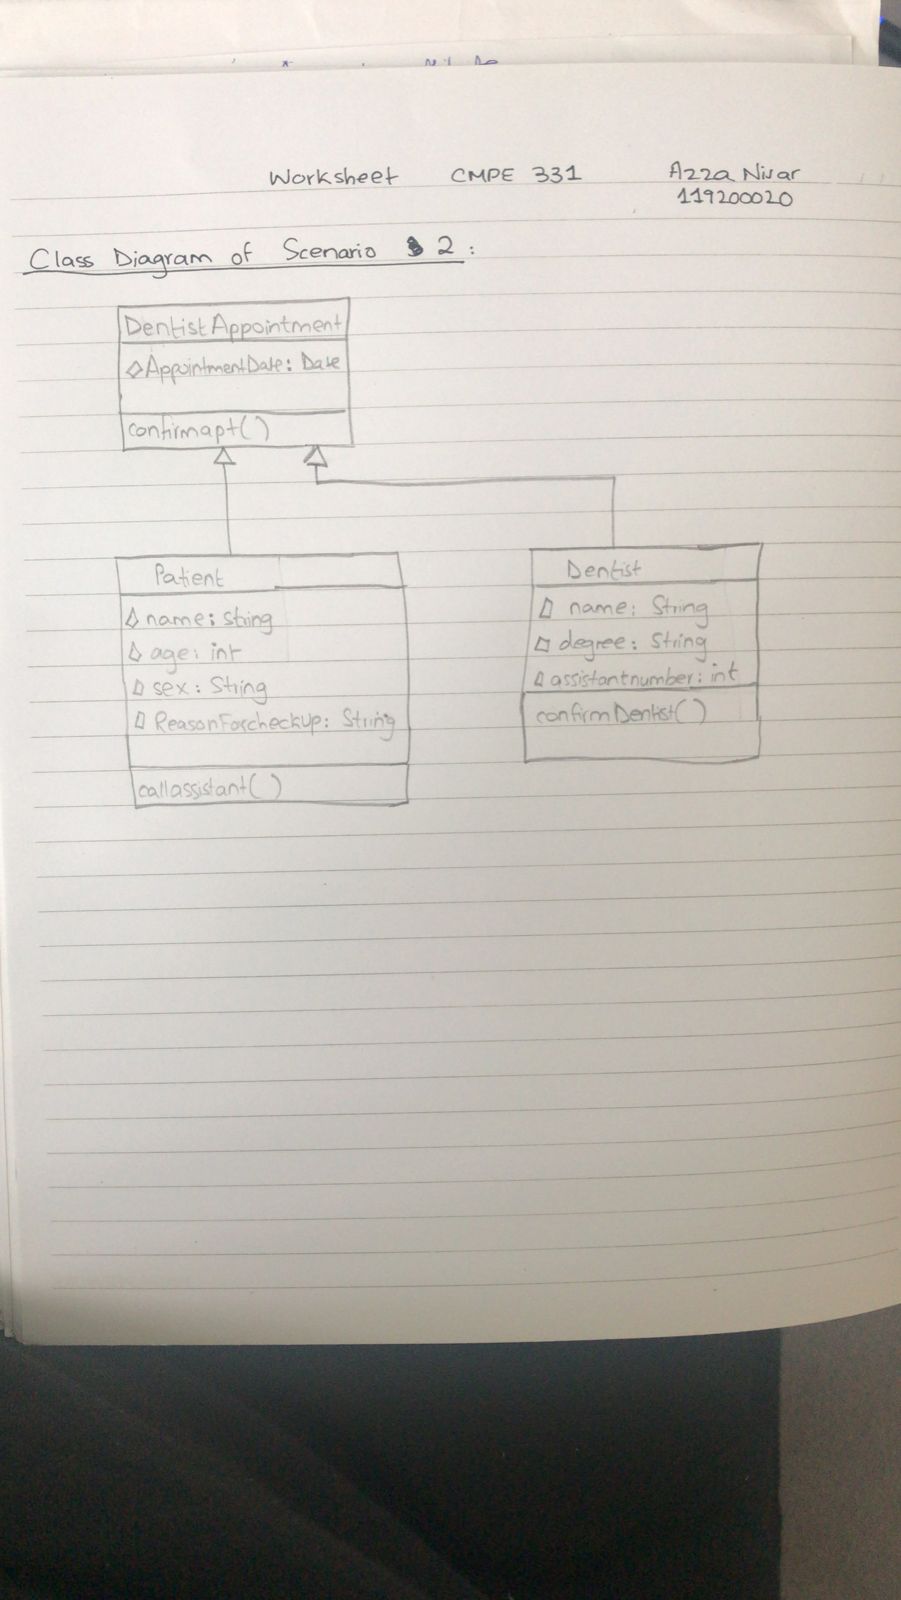 Worksheet CMPE 331 Azza Nisar
119200020
Class Diagram of Scenario 2:
DentistAppointment
AppointmentDate: Date
confirmapt()
Patient
name: String
age: int
sex: String
ReasonForcheckup: String
callassistant()
Dentist
name: String
degree: String
assistantnumber: int
confirmDentist()